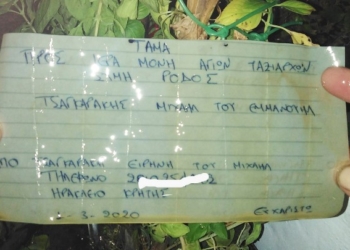 ΤΑΜΑ
ΠΡΟΣ ΙΕΡΑ ΜΟΝΗ ΑΓΙΩΝ ΤΑΞΙΑΡΧΩΝ
ΣΥΜΗ ΡΟΔΟΣ
ΤΣΑΓΚΑΡΑΚΗΣ ΜΙΧΑΗΛ ΤΟΥ ΕΜΜΑΝΟΥΗΛ
ΠΟ ΤΣΑΓΚΑΡΑΚΗ ΕΙΡΗΝΗ ΤΟΥ ΜΙΧΑΗΛ
ΤΗΛΕΦΩΝΟ
ΗΡΑΚΛΕΙΟ ΚΡΗΤΗΣ
3-2020 ΕΥΧΑΡΙΣΤΩ